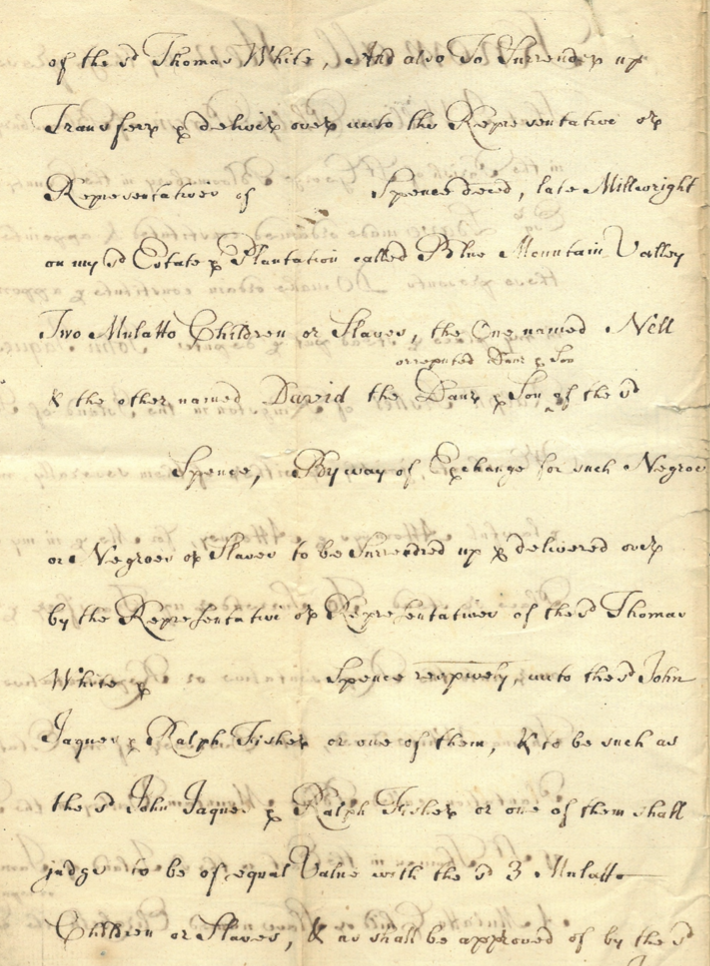 of the sd Thomas White, And also To Surrender up
Transferr & deliver over unto the Representative or
Representatives of Spence deced, late Millwright
on my sd Estate & Plantation called Blue Mountain Valley
Two Mulatto Children or Slaves, the One named Nell
or reputed Daur & Son
& the other named David the Daur & Son of the sd
Spence, By way of Exchange for such Negroe
or Negroes or Slaves to be Surrendred up & delivered over
by the Representative or Representatives of the sd Thomas
White & Spence respively, unto the sd John
Jaques & Ralph Fisher or one of them, & to be such as
the sd John Jaques & Ralph Fisher or one of them shall
judge to be of equal Value with the sd 3 Mulatto
Children or Slaves, & as shall be approved of by the sd